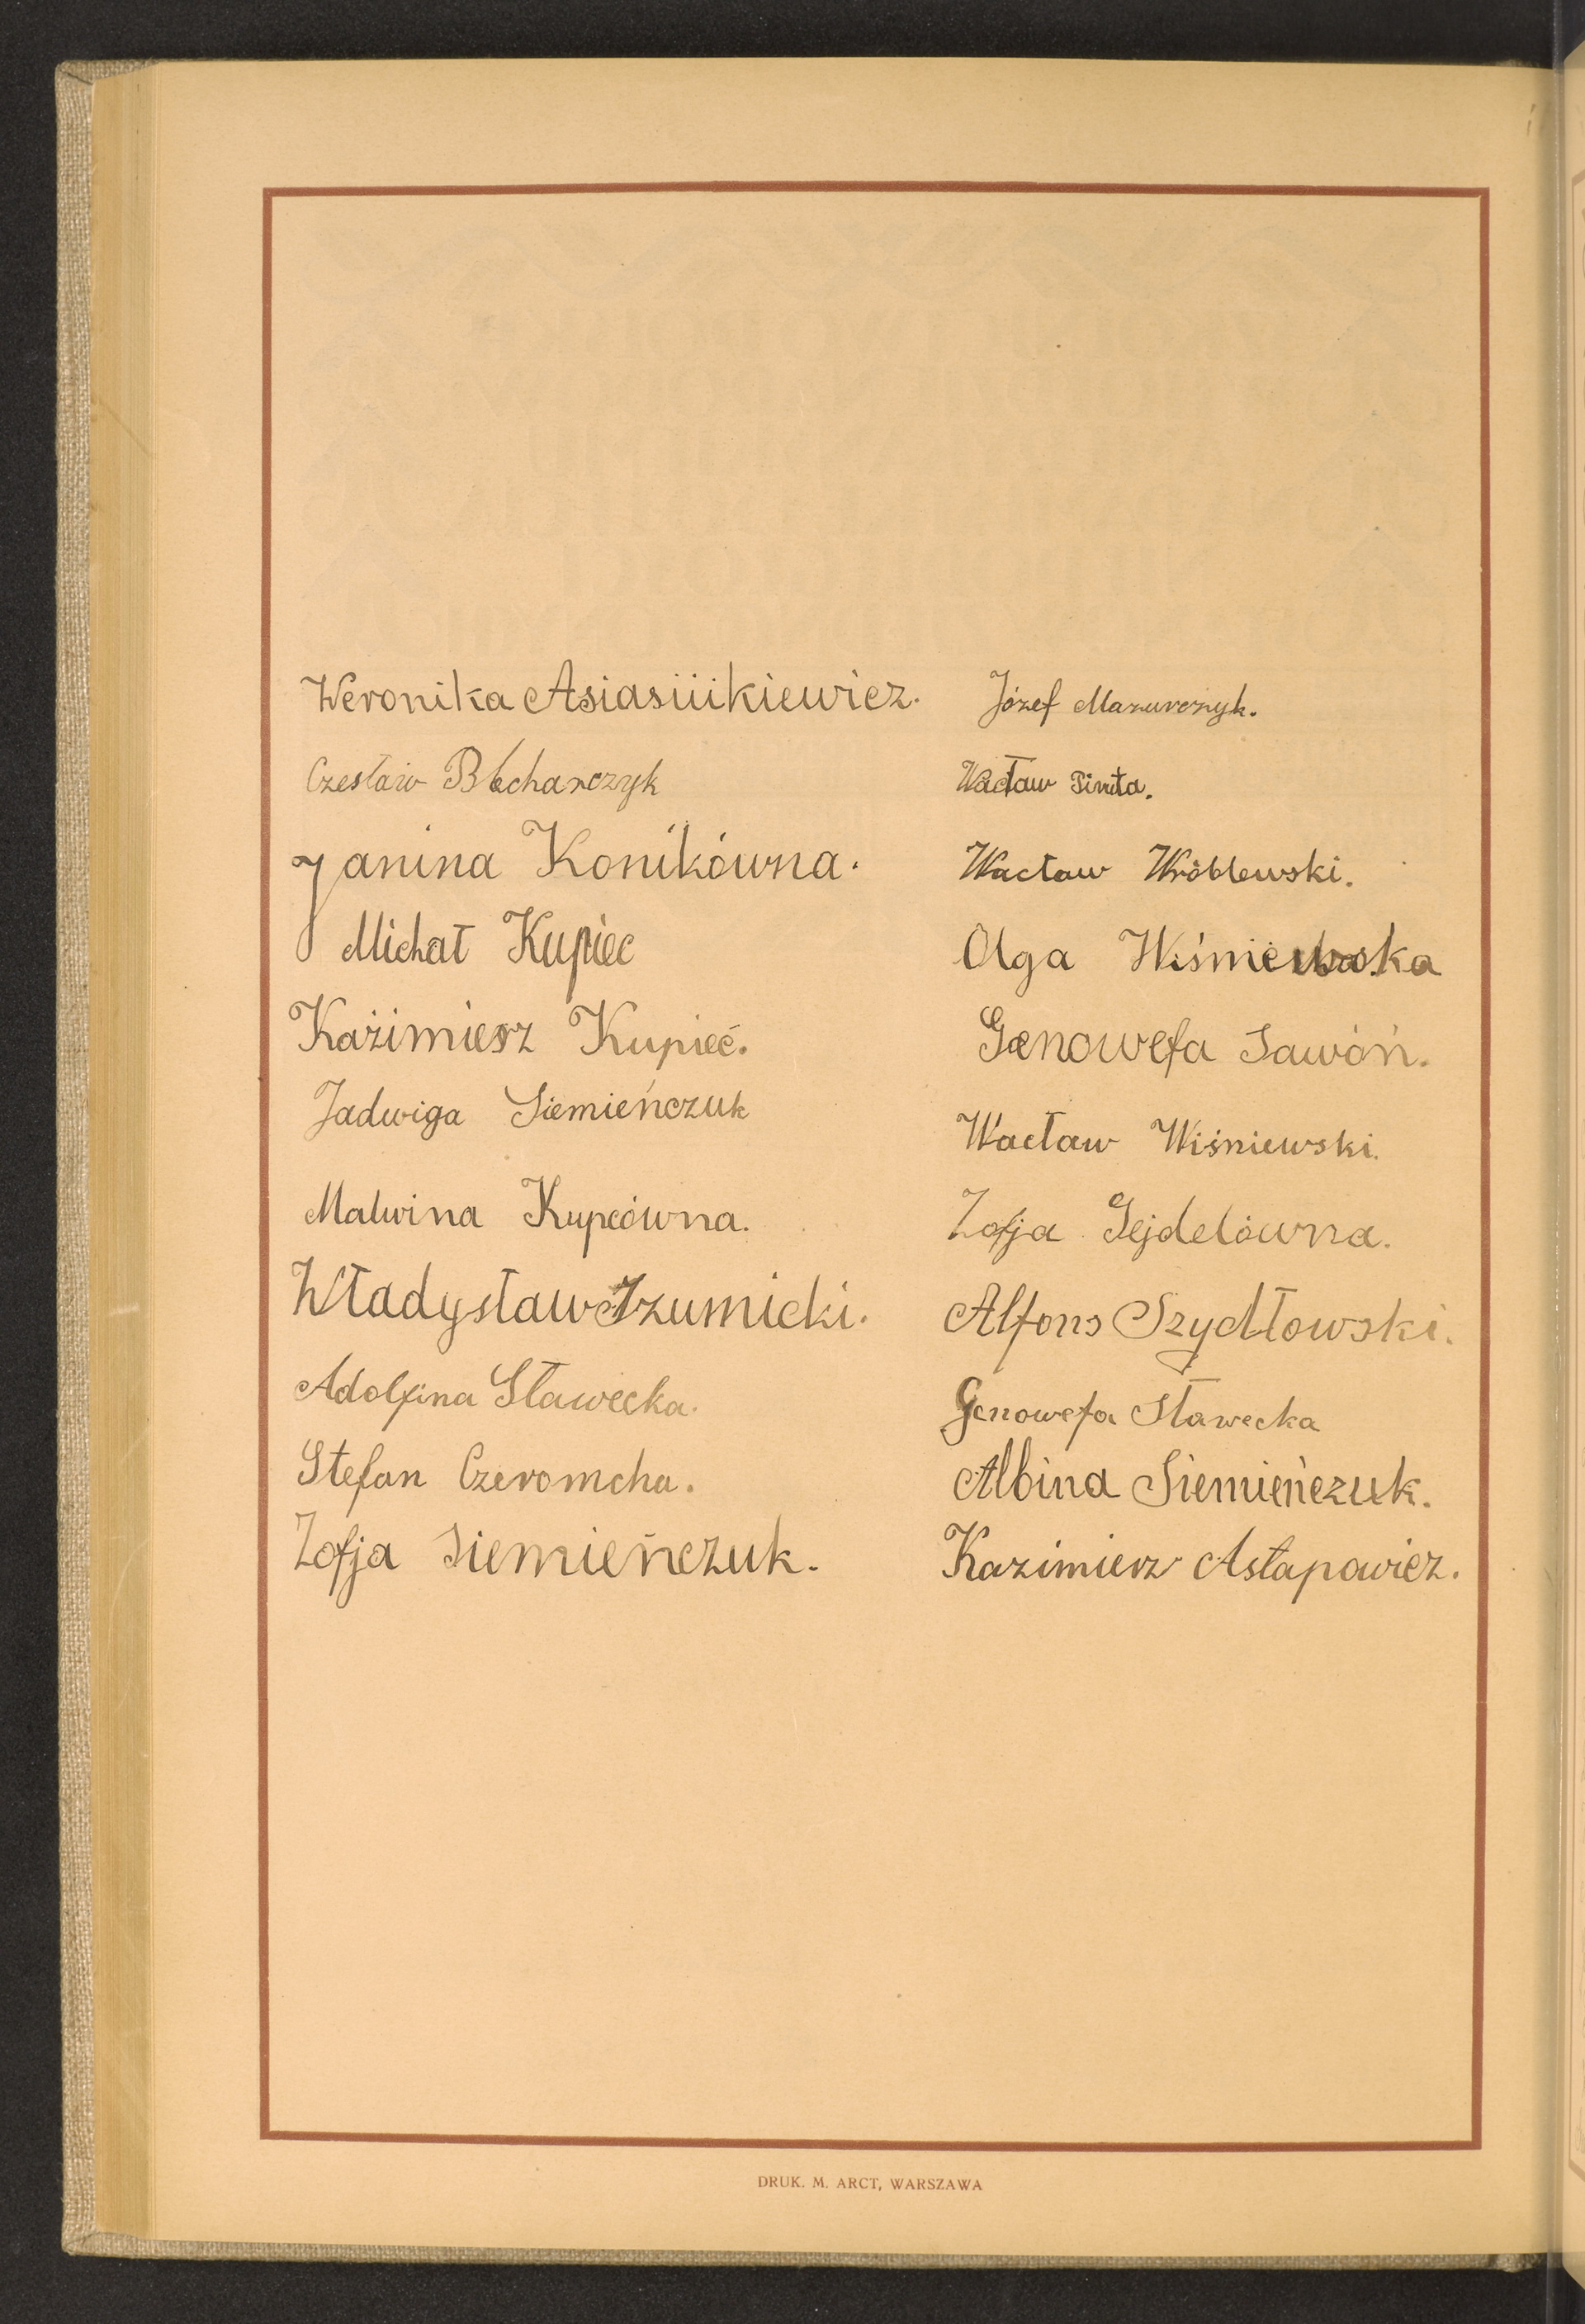 Weronika Asiasiiikiewicz.
Czesław Blcharczyk
Janina Konikówna.
Michał Kupiec
Kaźimierz Kupieć.
Jadwiga Siemieńczuk
Malwina Kupcówna.
Władysław Izumicki.
Adolfina Sławecka.
Stefan Czeromcha.
Zofja Siemieńczuk.
Józef Mazurczyk.
Wacław
Wacław Wróblewski.
Olga Wiśniewska
Genowefa Sawóń.
Wacław Wiśniewski.
Zofja Sejdelówna.
Alfons Szydłowski.
Genowefa Sławecka
Albina Siemieńczuk.
Kazimierz Astapowicz.
DRUK. M. ARCT, WARSZAWA